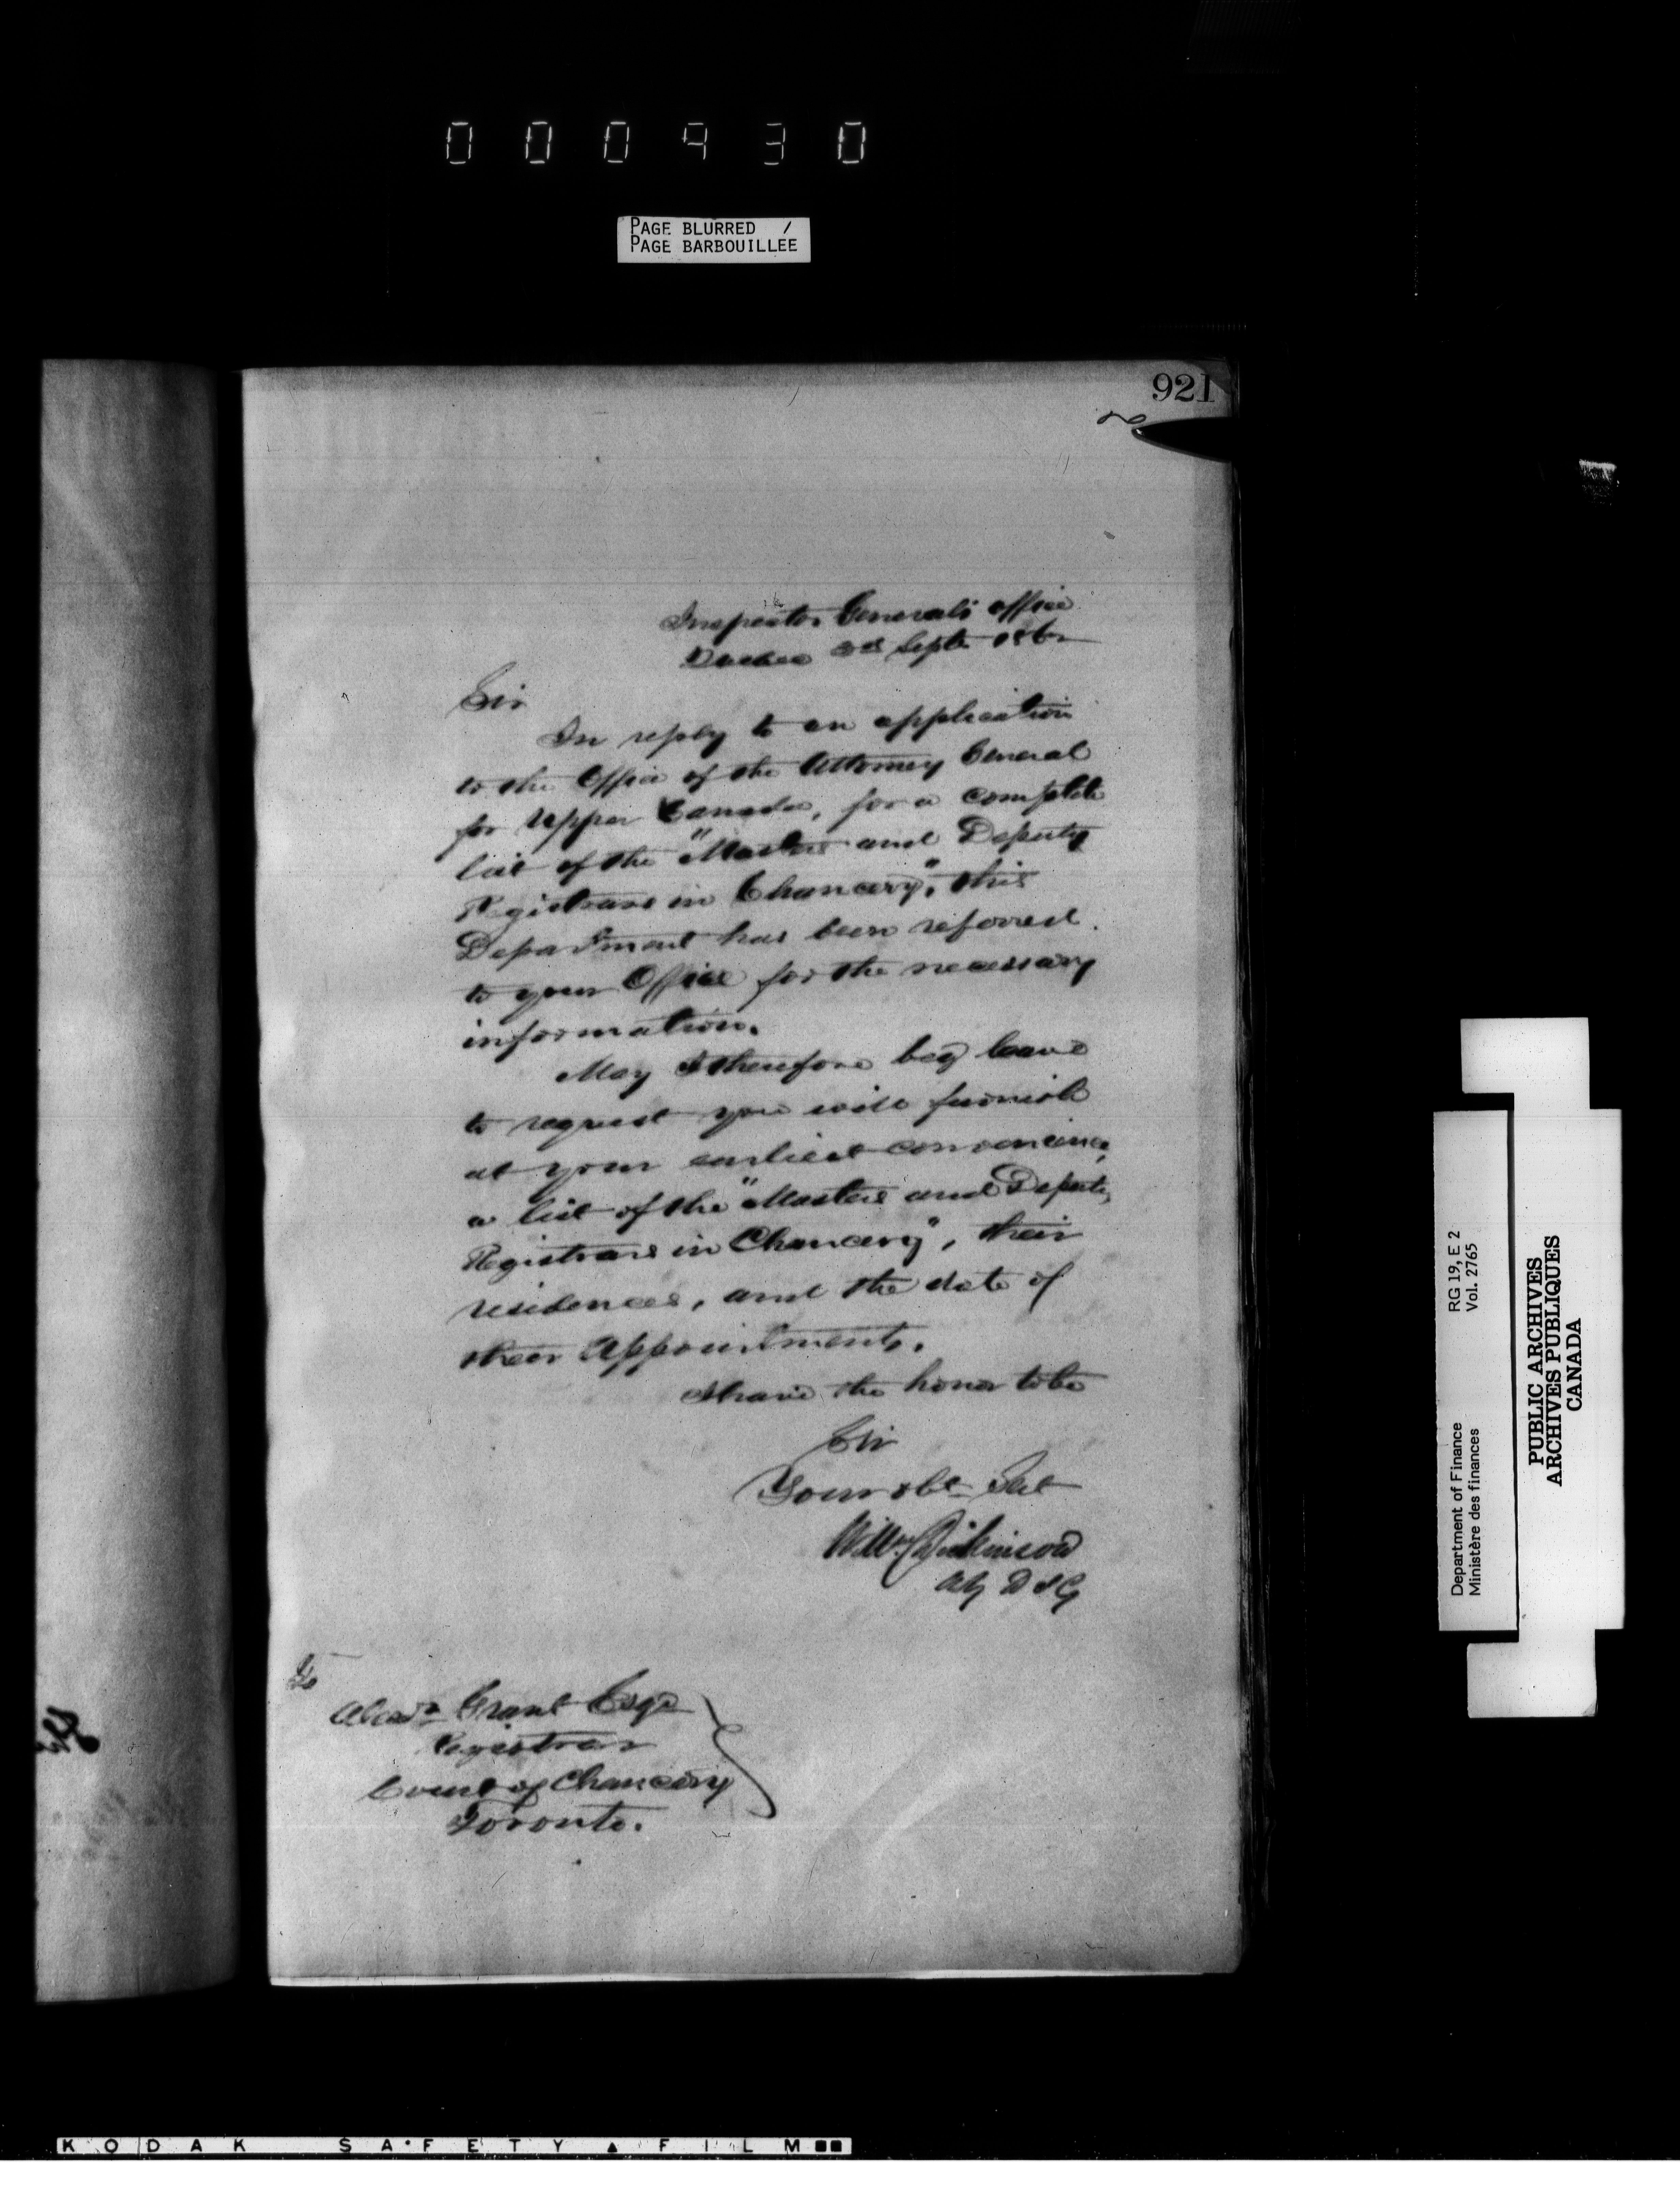 000930
PAGE BLURRED /
PAGE BARBOUILLEE
921
Inspector Generals office
Quebec 3rd Septr 1862
Sir
In reply to an application
to the Office of the Attorney General
for Upper Canada, for a complete
list of the "Masters and Deputy
Registrars in Chancery", this
Department has been referred
to your Office for the necessary
information.
May I therefore beg leave
to request you will furnish
at your earliest convenience,
a list of the "Masters and Deputy
Registrars in Chancery", their
residences, and the date of
their Appointments.
I have the honor to be
Sir
Your obt Svt
Wm Dickinson
Ag D I G
To
Alexdr Grant Esqr
Registrar
Court of Chancery
Toronto.
Department of Finance RG 19, E 2
Ministère des finances Vol. 2765
PUBLIC ARCHIVES
ARCHIVES PUBLIQUES
CANADA
KODAK SAFETY FILM